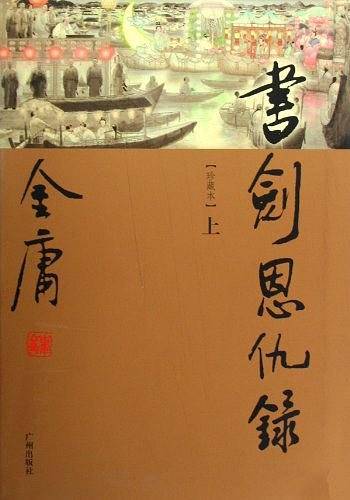 書劍恩仇録
【珍藏本】
上
金庸
广州出版社